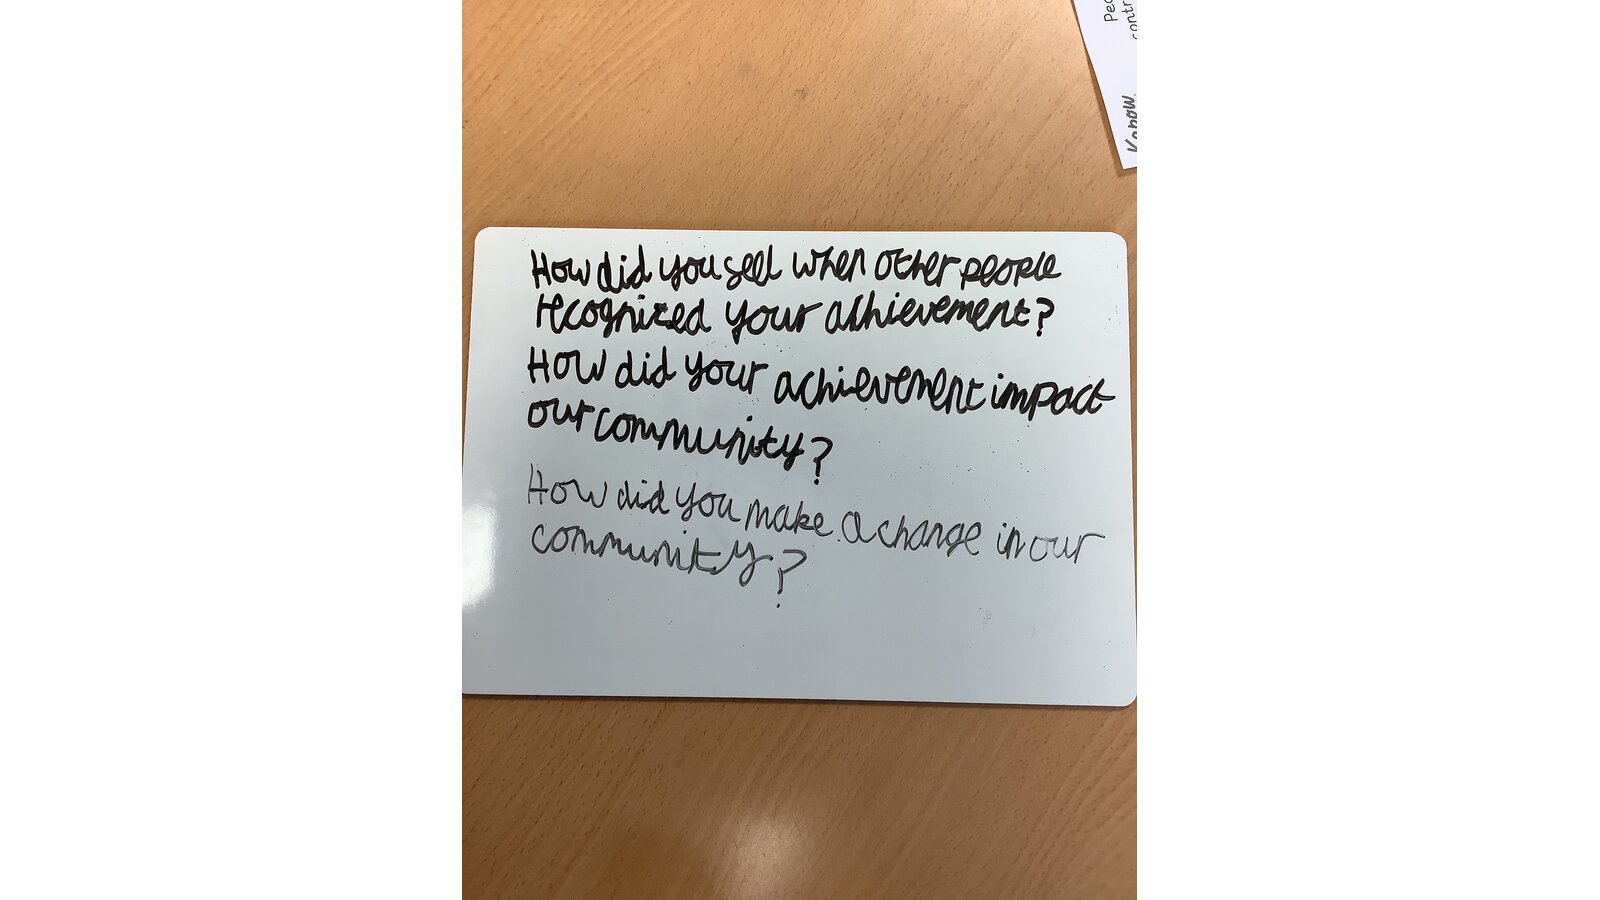 Peo
contr
Kapow
How did you feel when other people
recognized your achievement?
How did your achievement impact
our community?
How did you make a change in our
community?